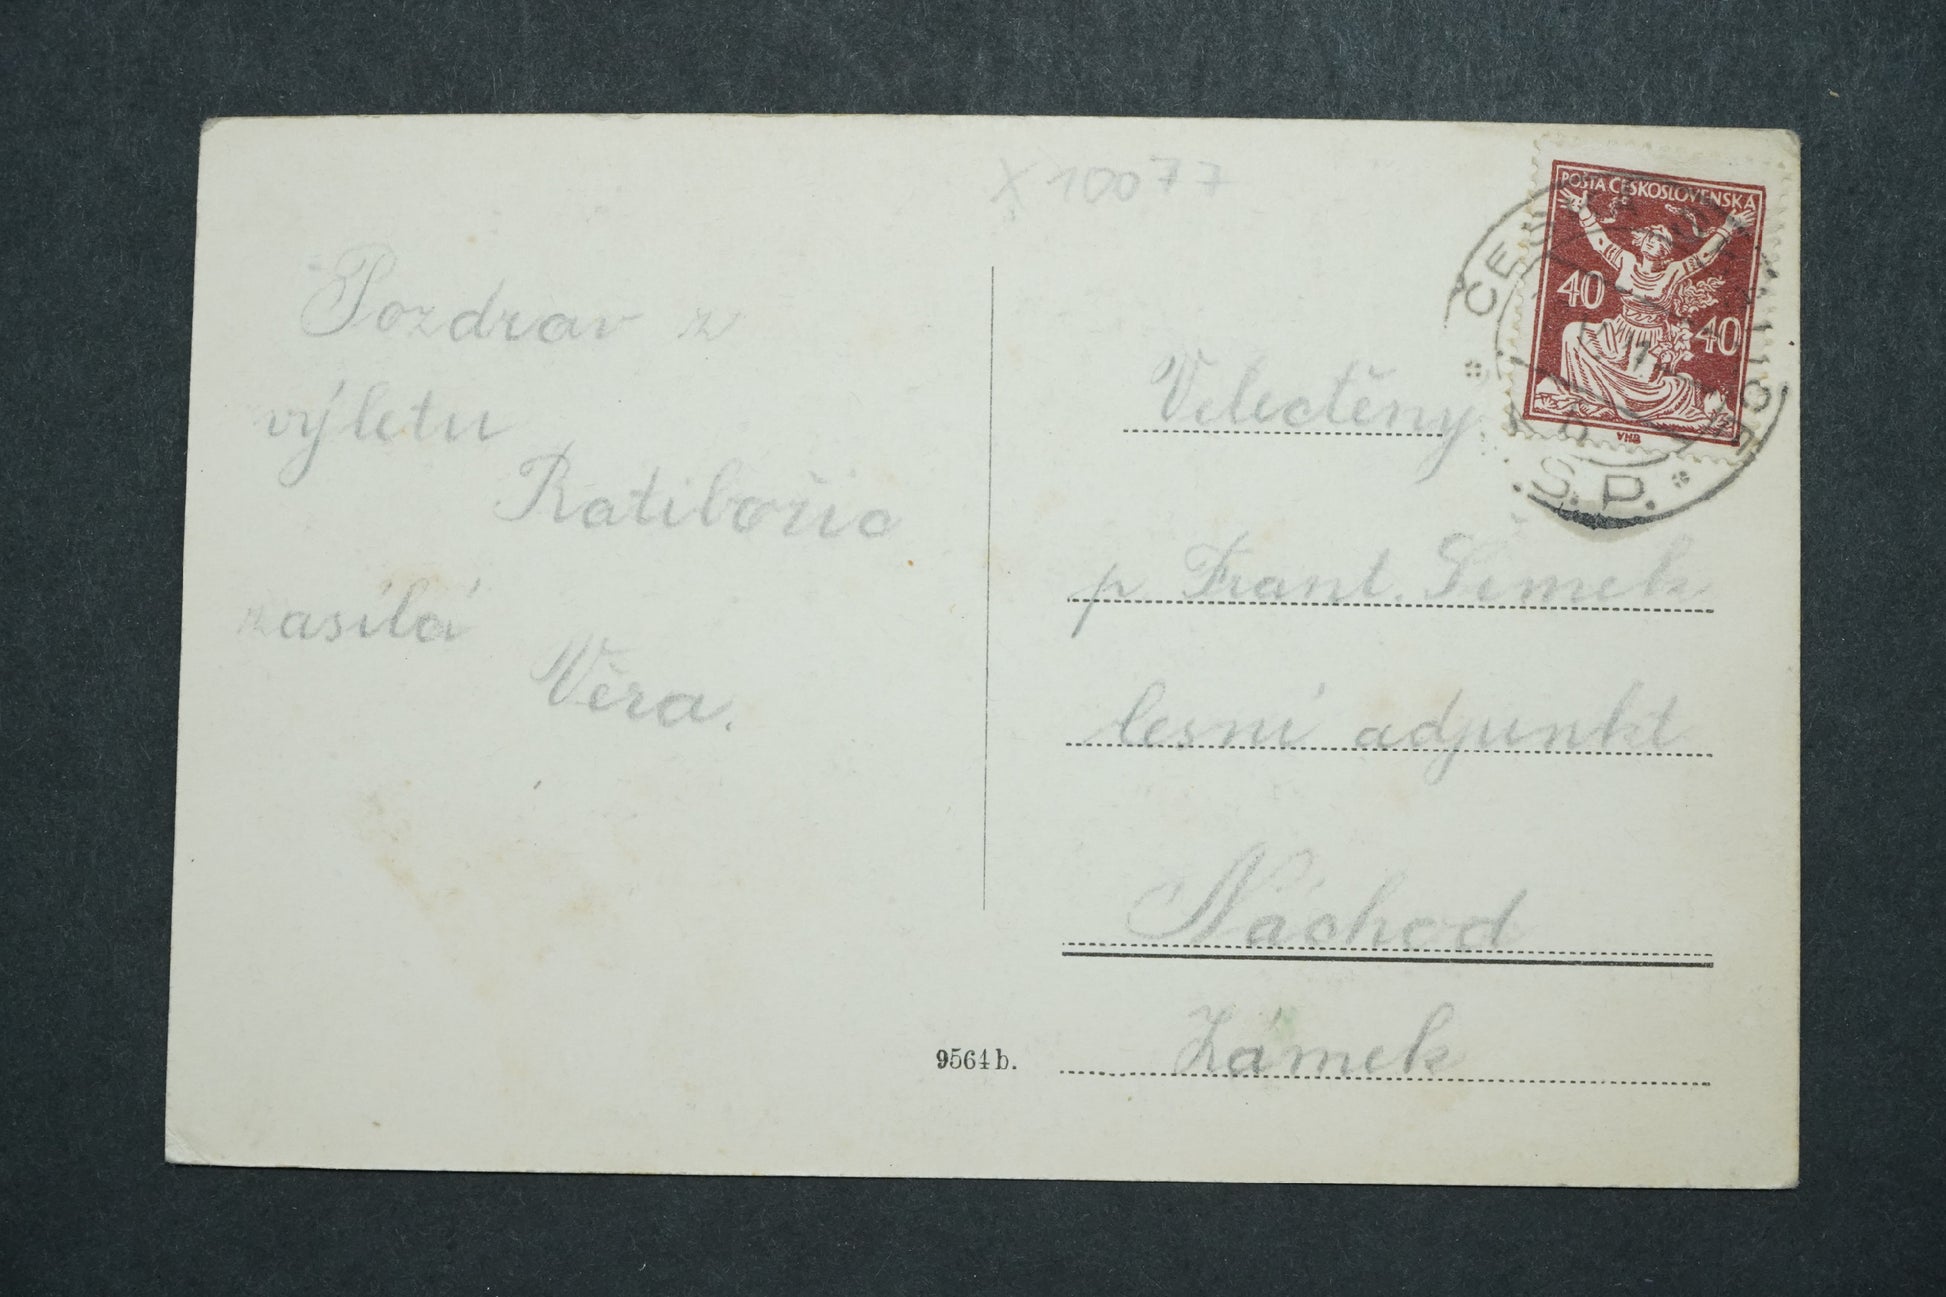 X 10077
Pozdrav z
výletu
Ratibořic
zasílá
Věra.
9564b.
POŠTA ČESKOSLOVENSKÁ
40
40
S.P.
Velectěný
p Frant. Šimek
lesní adjunkt
Náchod
Zámek